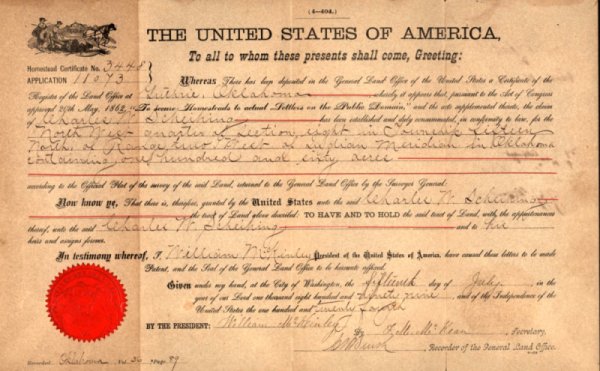 (4—404.)
THE UNITED STATES OF AMERICA,
To all to whom these presents shall come, Greeting:
Homestead Certificate No. 3448
APPLICATION 11073
Whereas There has been deposited in the General Land Office of the United States a Certificate of the
Register of the Land Office at Guthrie, Oklahoma whereby it appears that, pursuant to the Act of Congress
approved 20th May, 1862, "To secure Homesteads to actual Settlers on the Public Domain," and the acts supplemental thereto, the claim
of Charlie W. Scheihing has been established and duly consummated, in conformity to law, for the
North West quarter of Section eight in Township sixteen
North, of Range two West of Indian Meridian in Oklahoma
containing one hundred and sixty acres
according to the Official Plat of the survey of the said Land, returned to the General Land Office by the Surveyor General:
Now know ye, That there is, therefore, granted by the United States unto the said Charlie W. Scheihing
the tract of Land above described: TO HAVE AND TO HOLD the said tract of Land, with the appurtenances
thereof, unto the said Charlie W. Scheihing and to his
heirs and assigns forever.
In testimony whereof, I, William McKinley President of the United States of America, have caused these letters to be made
Patent, and the Seal of the General Land Office to be hereunto affixed.
Given under my hand, at the City of Washington, the fifteenth day of July, in the
year of our Lord one thousand eight hundred and ninety nine, and of the Independence of the
United States the one hundred and twenty fourth
BY THE PRESIDENT: William McKinley
By F. M. McKean Secretary,
Recorder of the General Land Office.
Recorded Oklahoma Vol 36 Page 89